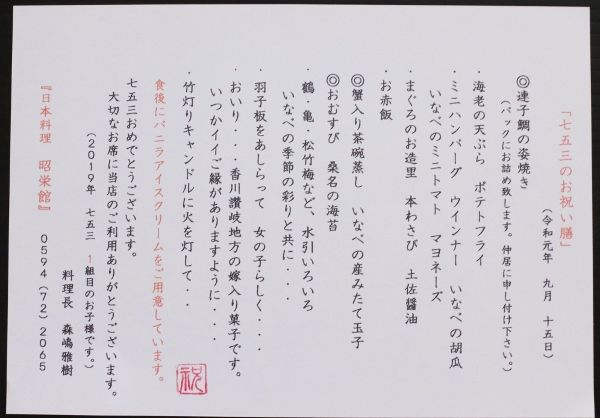 「七五三のお祝い膳」
(令和元年　九月　十五日)
◎連子鯛の姿焼き
(パックにお詰め致します。仲居に申し付け下さい。)
・海老の天ぷら　ポテトフライ
・ミニハンバーグ　ウインナー　いなべの胡瓜
いなべのミニトマト　マヨネーズ
・まぐろのお造里　本わさび　土佐醤油
・お赤飯
◎蟹入り茶碗蒸し　いなべの産みたて玉子
◎おむすび　桑名の海苔
・鶴・亀・松竹梅など、水引いろいろ
いなべの季節の彩りと共に・・・
・羽子板をあしらって　女の子らしく・・・
・おいり・・・香川讃岐地方の嫁入り菓子です。
いつかイイご縁がありますように・・・
・竹灯りキャンドルに火を灯して・・
食後にバニラアイスクリームをご用意しています。
七五三おめでとうございます。
大切なお席に当店のご利用ありがとうございます。
(2019年　七五三　1組目のお子様です。)
料理長　森嶋雅樹
『日本料理　昭栄館』　0594(72)2065
祝